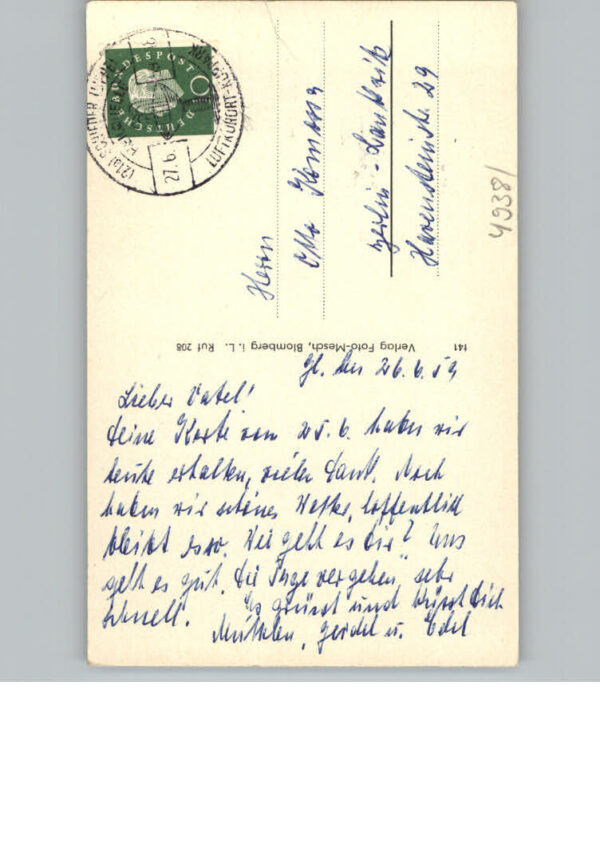 DEUTSCHE BUNDESPOST
LUFTKURORT
27.6.
Herrn
Otto
Berlin - Lankwitz
Havensteinstr. 29
4938/
141 Verlag Foto-Mesch, Blomberg i. L. Ruf 208
den 26.6.59
Lieber Vatel!
Deine Karte vom 25.6. haben wir
heute erhalten, vielen Dank. Noch
haben wir schönes Wetter, hoffentlich
bleibt es so. Wie geht es dir? Uns
geht es gut, die Tage vergehen sehr
schnell. Es grüsst und küsst Dich
u. Edel